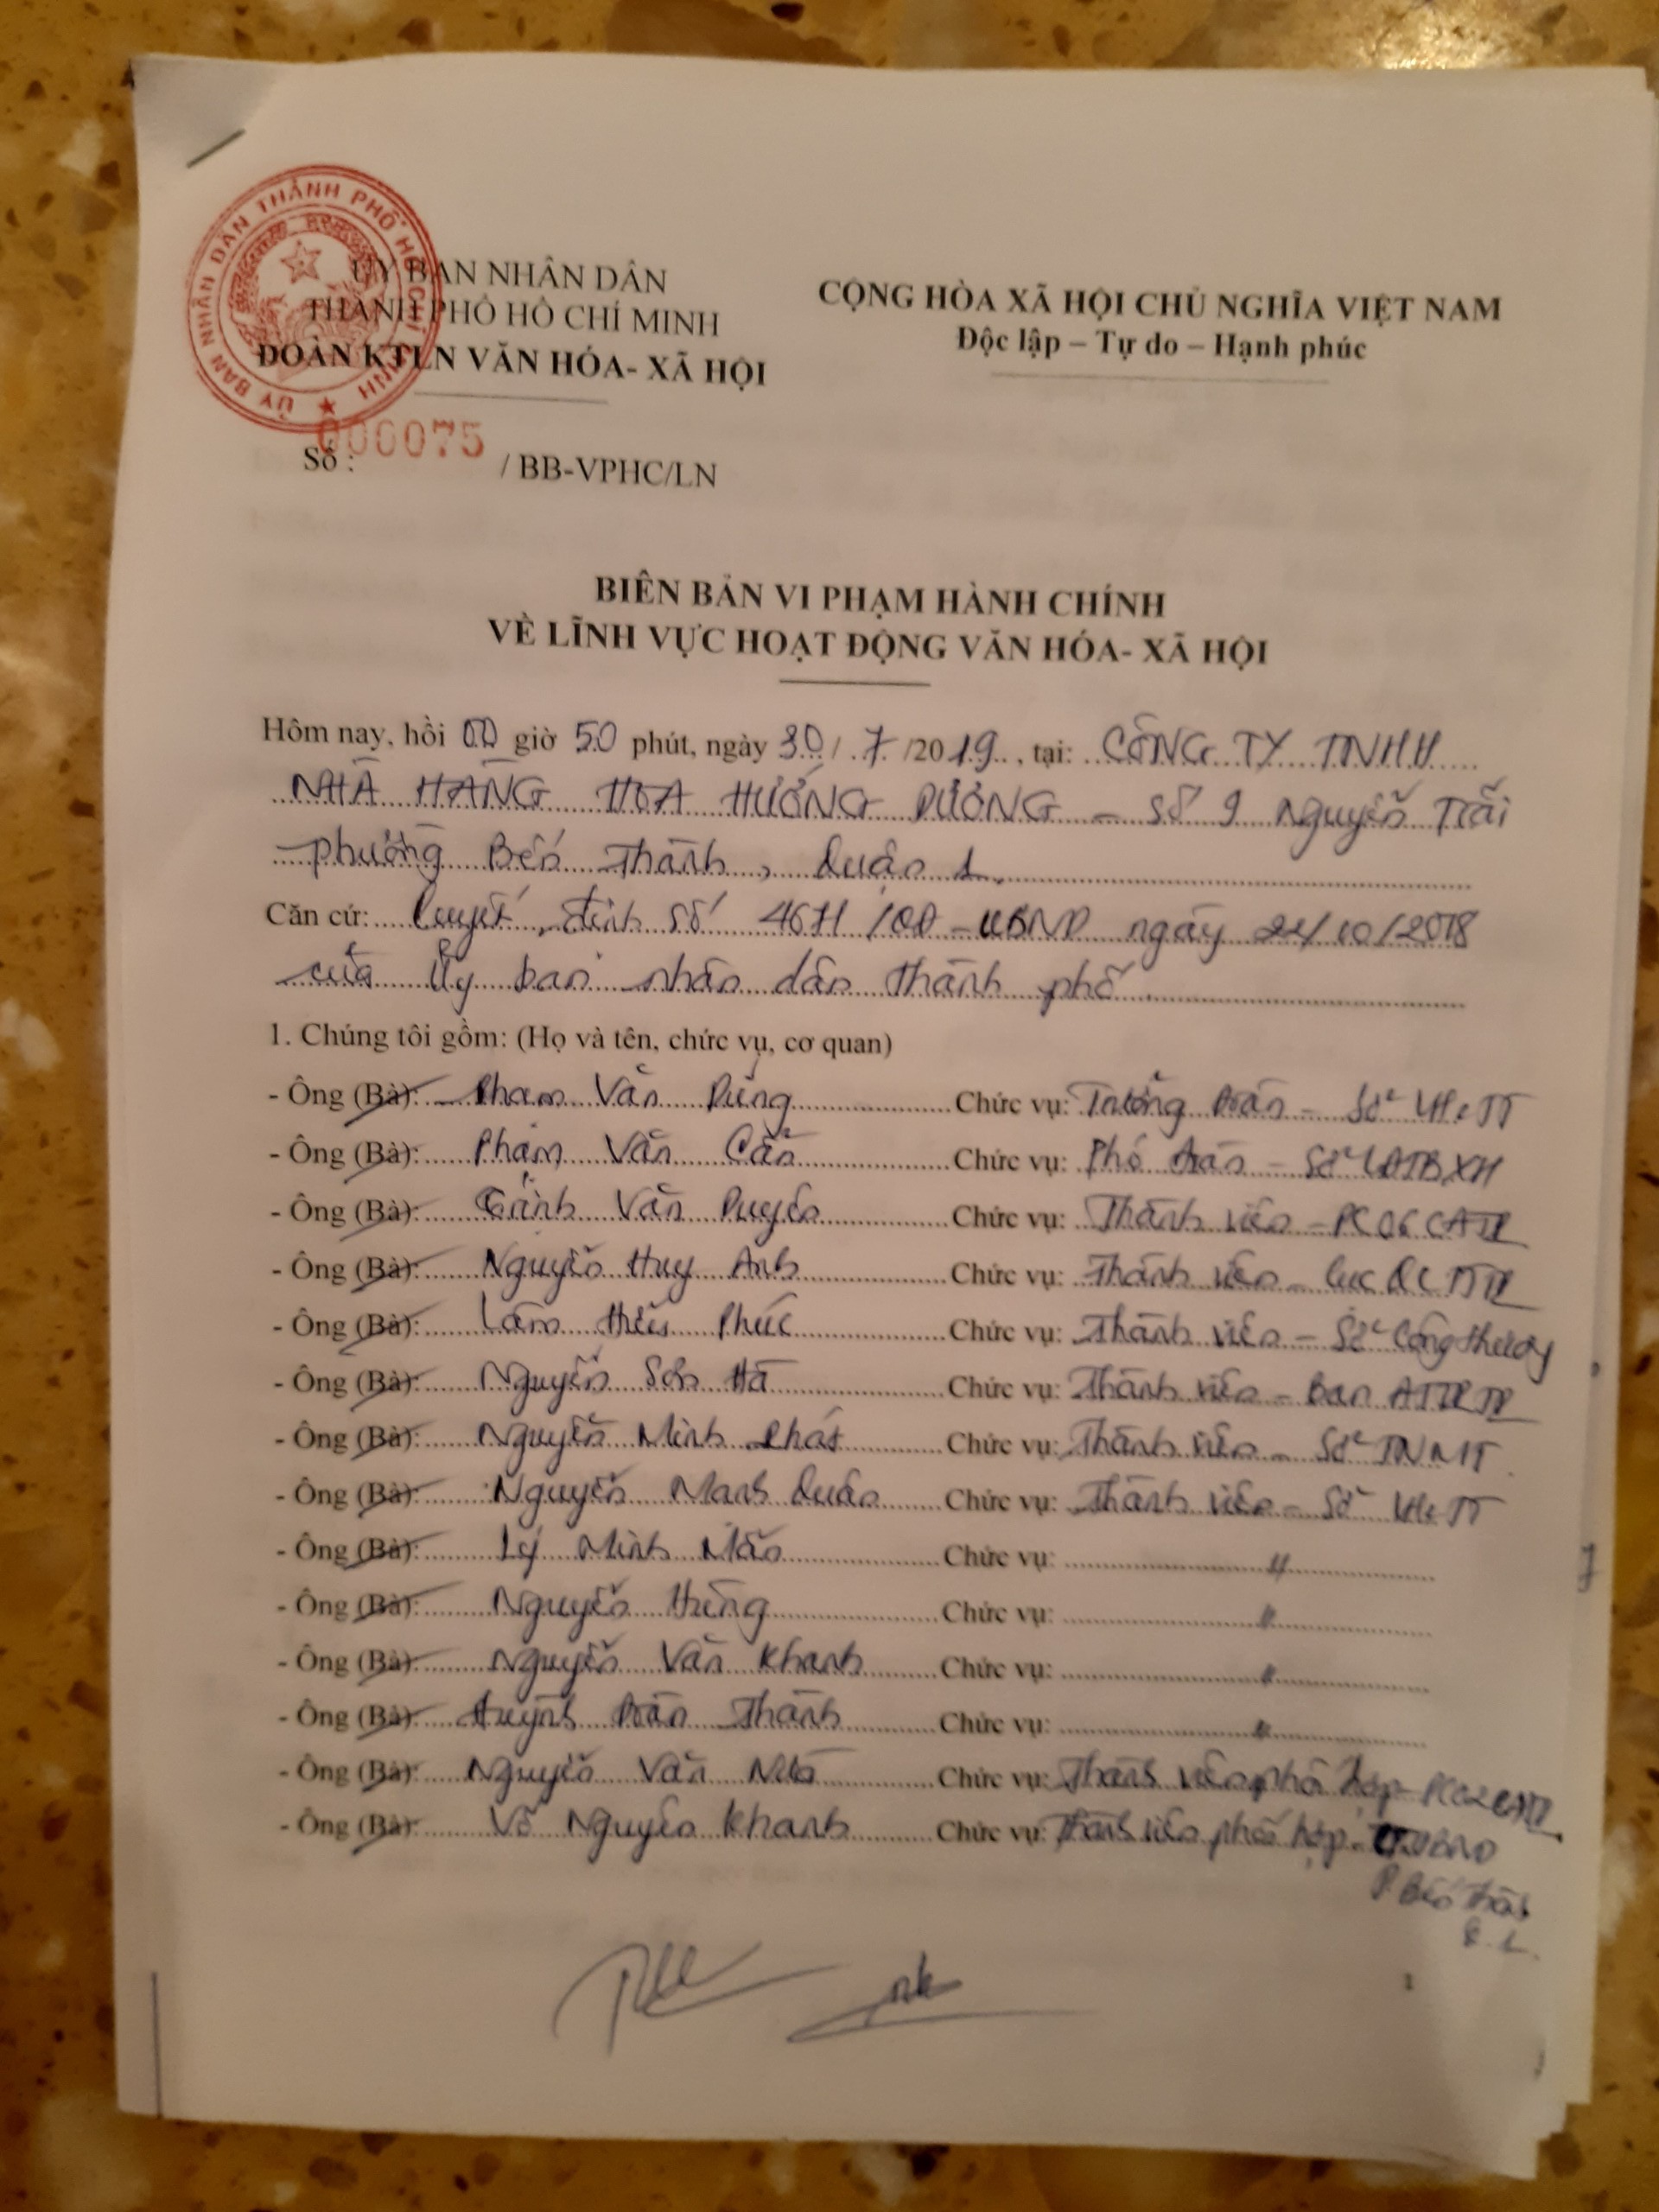 ỦY BAN NHÂN DÂN THÀNH PHỐ HỒ CHÍ MINH
ỦY BAN NHÂN DÂN
THÀNH PHỐ HỒ CHÍ MINH
ĐOÀN KTLN VĂN HÓA- XÃ HỘI
CỘNG HÒA XÃ HỘI CHỦ NGHĨA VIỆT NAM
Độc lập – Tự do – Hạnh phúc
Số : 000075 / BB-VPHC/LN
BIÊN BẢN VI PHẠM HÀNH CHÍNH
VỀ LĨNH VỰC HOẠT ĐỘNG VĂN HÓA- XÃ HỘI
Hôm nay, hồi 00 giờ 50 phút, ngày 30 / 7 /2019 , tại: CÔNG TY TNHH
NHÀ HÀNG HOA HƯỚNG DƯƠNG – Số 9 Nguyễn Trãi
phường Bến Thành, Quận 1.
Căn cứ: Quyết định số 4671 /QĐ – UBND ngày 24/10/2018
của Ủy ban nhân dân thành phố
1. Chúng tôi gồm: (Họ và tên, chức vụ, cơ quan)
- Ông (Bà): Phạm Văn Dũng Chức vụ: Trưởng Đoàn – Sở VH&TT
- Ông (Bà): Phạm Văn Chức vụ: Phó Đoàn – Sở LĐTBXH
- Ông (Bà): Văn Duyên Chức vụ: Thành viên – PC06 CATP
- Ông (Bà): Nguyễn Huy Anh Chức vụ: Thành viên – Cục QLTT TP
- Ông (Bà): Lâm Hữu Phúc Chức vụ: Thành viên – Sở Công thương
- Ông (Bà): Nguyễn Sơn Hà Chức vụ: Thành viên – Ban ATTP TP
- Ông (Bà): Nguyễn Minh Phát Chức vụ: Thành viên – Sở TNMT
- Ông (Bà): Nguyễn Mạnh Quân Chức vụ: Thành viên – Sở VH&TT
- Ông (Bà): Lý Minh Mẫn Chức vụ: "
- Ông (Bà): Nguyễn Hùng Chức vụ: "
- Ông (Bà): Nguyễn Văn Khanh Chức vụ: "
- Ông (Bà): Huỳnh Đoàn Thành Chức vụ: "
- Ông (Bà): Nguyễn Văn Chức vụ: Thành viên phối hợp – PC02 CATP
- Ông (Bà): Võ Nguyên Khanh Chức vụ: Thành viên phối hợp – UBND
P. Bến Thành
Q.1.
1